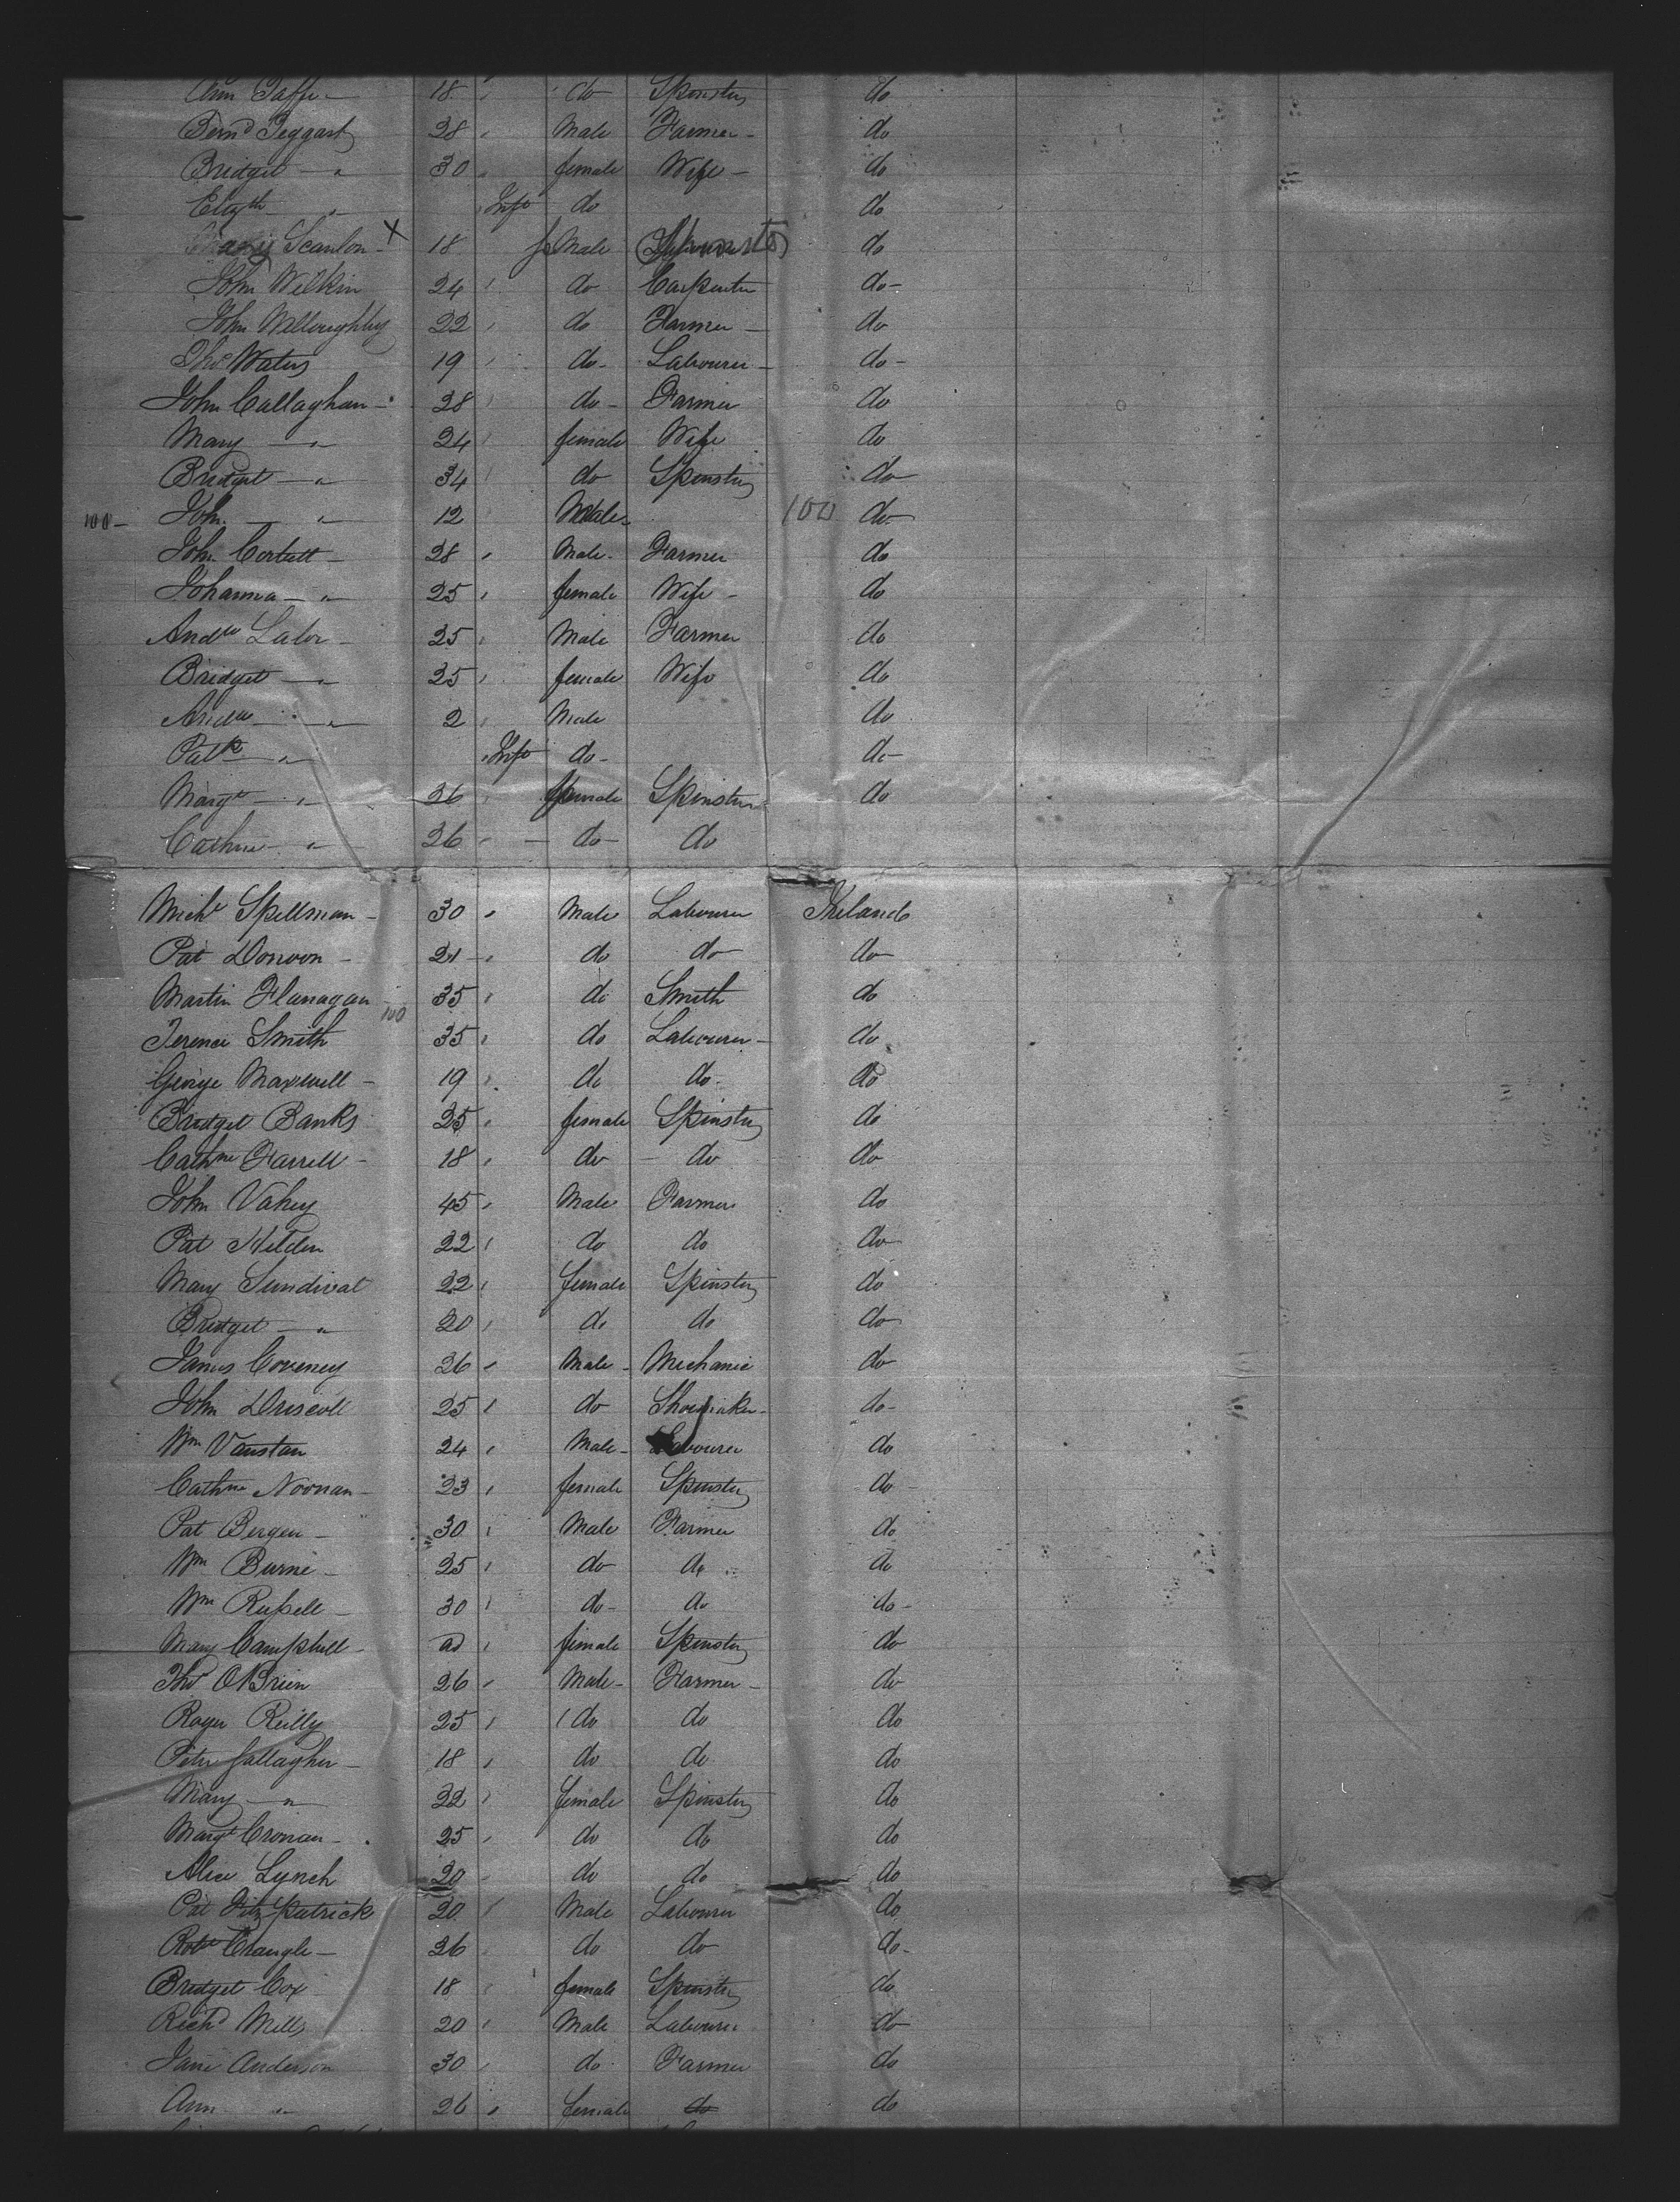 Ann Taffe — 18 do Spinster do
Bernd Teggart 28 Male Farmer — do
Bridget — " 30 female Wife — do
Elizth " Inft do do
Mary Scanlon X 18 feMale Spinster do
John Wilkin 24 do Carpenter do —
John Willoughby 22 do Farmer — do
Thos Waters 19 do — Labourer — do —
John Callaghan — 28 do — Farmer do
Mary — " 24 female Wife do
Bridget — " 34 do Spinster do
100 — John — " 12 Male 100 do
John Corbett — 28 Male — Farmer do
Johanna — " 25 female Wife — do
Andw Lalor — 25 Male Farmer do
Bridget — " 25 female Wife do
Andw — " 2 Male do
Patk — " Inft do — do —
Margt — " 26 female Spinster do
Cathne " 26 — do — do
Michl Spellman — 30 Male Labourer Ireland
Pat Donvon — 21 do do do
Martin Flanagan 35 do Smith do
100
Terence Smith 35 do Labourer — do
George Maxwell — 19 do do do
Bridget Banks 25 female Spinster do
Cathne Farrell — 18 do — do do
John Vahey 45 Male Farmer do
Pat Hilden 22 do do do
Mary Sundivat 22 female Spinster do
Bridget — " 20 do do do
James Coveney 26 Male — Mechanic do
John Driscoll 25 do Shoemaker — do —
Wm Vanstan 24 Male — Labourer do
Cathne Noonan — 23 female Spinster do
Pat Bergen — 30 Male Farmer do
Wm Burne — 25 do do do
Wm Russell — 30 do — do do —
Mary Campbell — ad female Spinster do
Thos OBrien 26 Male — Farmer — do
Roger Reilly 25 do do do
Peter Gallagher — 18 do do do
Mary — " 22 female Spinster do
Margt Cronan — 25 do do do
Alice Lynch 20 do do do
Pat Fitzpatrick 20 Male Labourer do
Robt Crangle — 26 do do do —
Bridget Cox 18 female Spinster do
Richd Mills 20 Male Labourer do
Jane Anderson 30 do Farmer do
Ann " 26 female do do